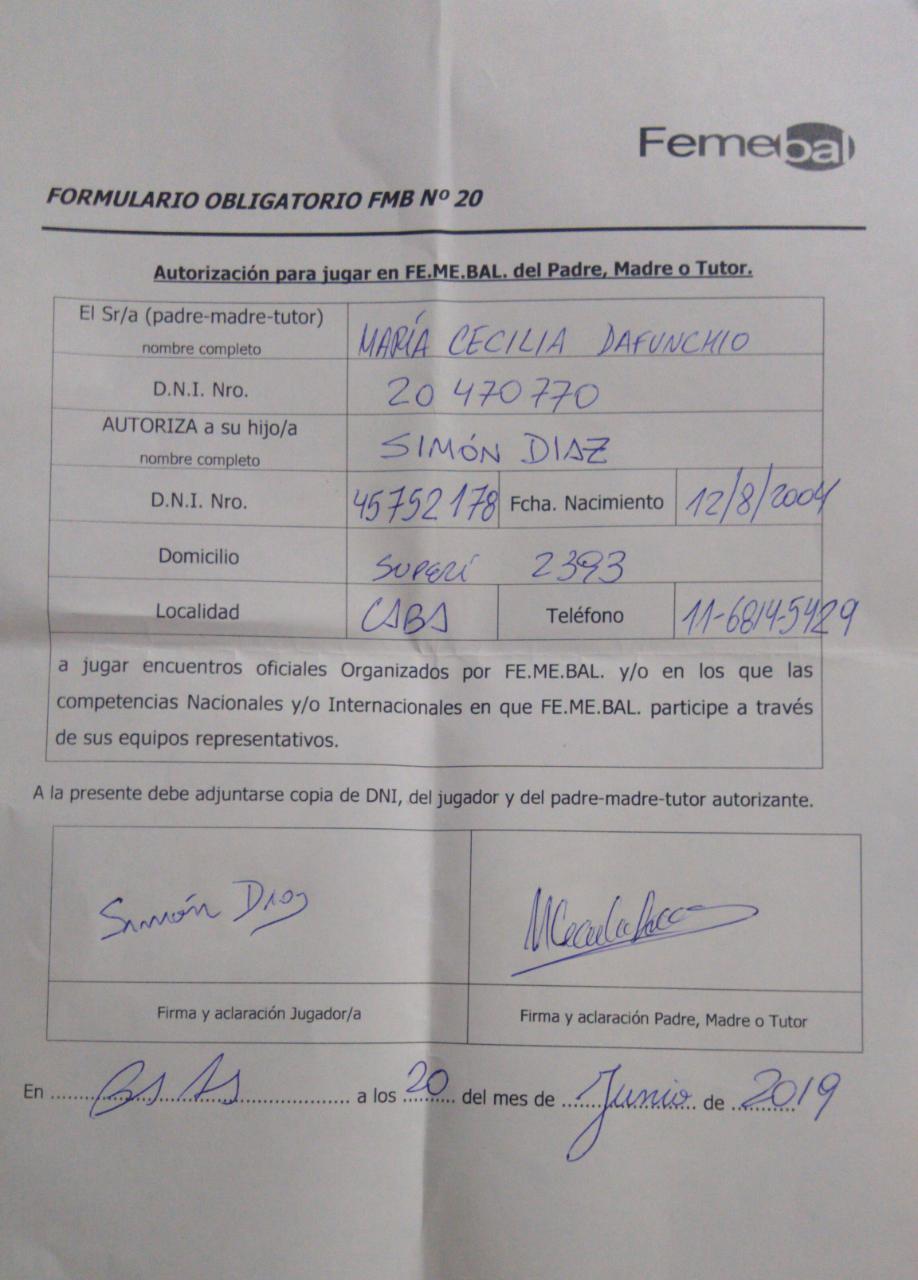 Femebal
FORMULARIO OBLIGATORIO FMB Nº 20
Autorización para jugar en FE.ME.BAL. del Padre, Madre o Tutor.
El Sr/a (padre-madre-tutor)
nombre completo
MARÍA CECILIA DAFUNCHIO
D.N.I. Nro.
20 470 770
AUTORIZA a su hijo/a
nombre completo
SIMÓN DIAZ
D.N.I. Nro.
45752178
Fcha. Nacimiento
12/8/2004
Domicilio
SUPERÍ 2393
Localidad
CABA
Teléfono
11-6814-5429
a jugar encuentros oficiales Organizados por FE.ME.BAL. y/o en los que las
competencias Nacionales y/o Internacionales en que FE.ME.BAL. participe a través
de sus equipos representativos.
A la presente debe adjuntarse copia de DNI, del jugador y del padre-madre-tutor autorizante.
Simón Diaz
Firma y aclaración Jugador/a
Firma y aclaración Padre, Madre o Tutor
En BS AS a los 20 del mes de Junio de 2019